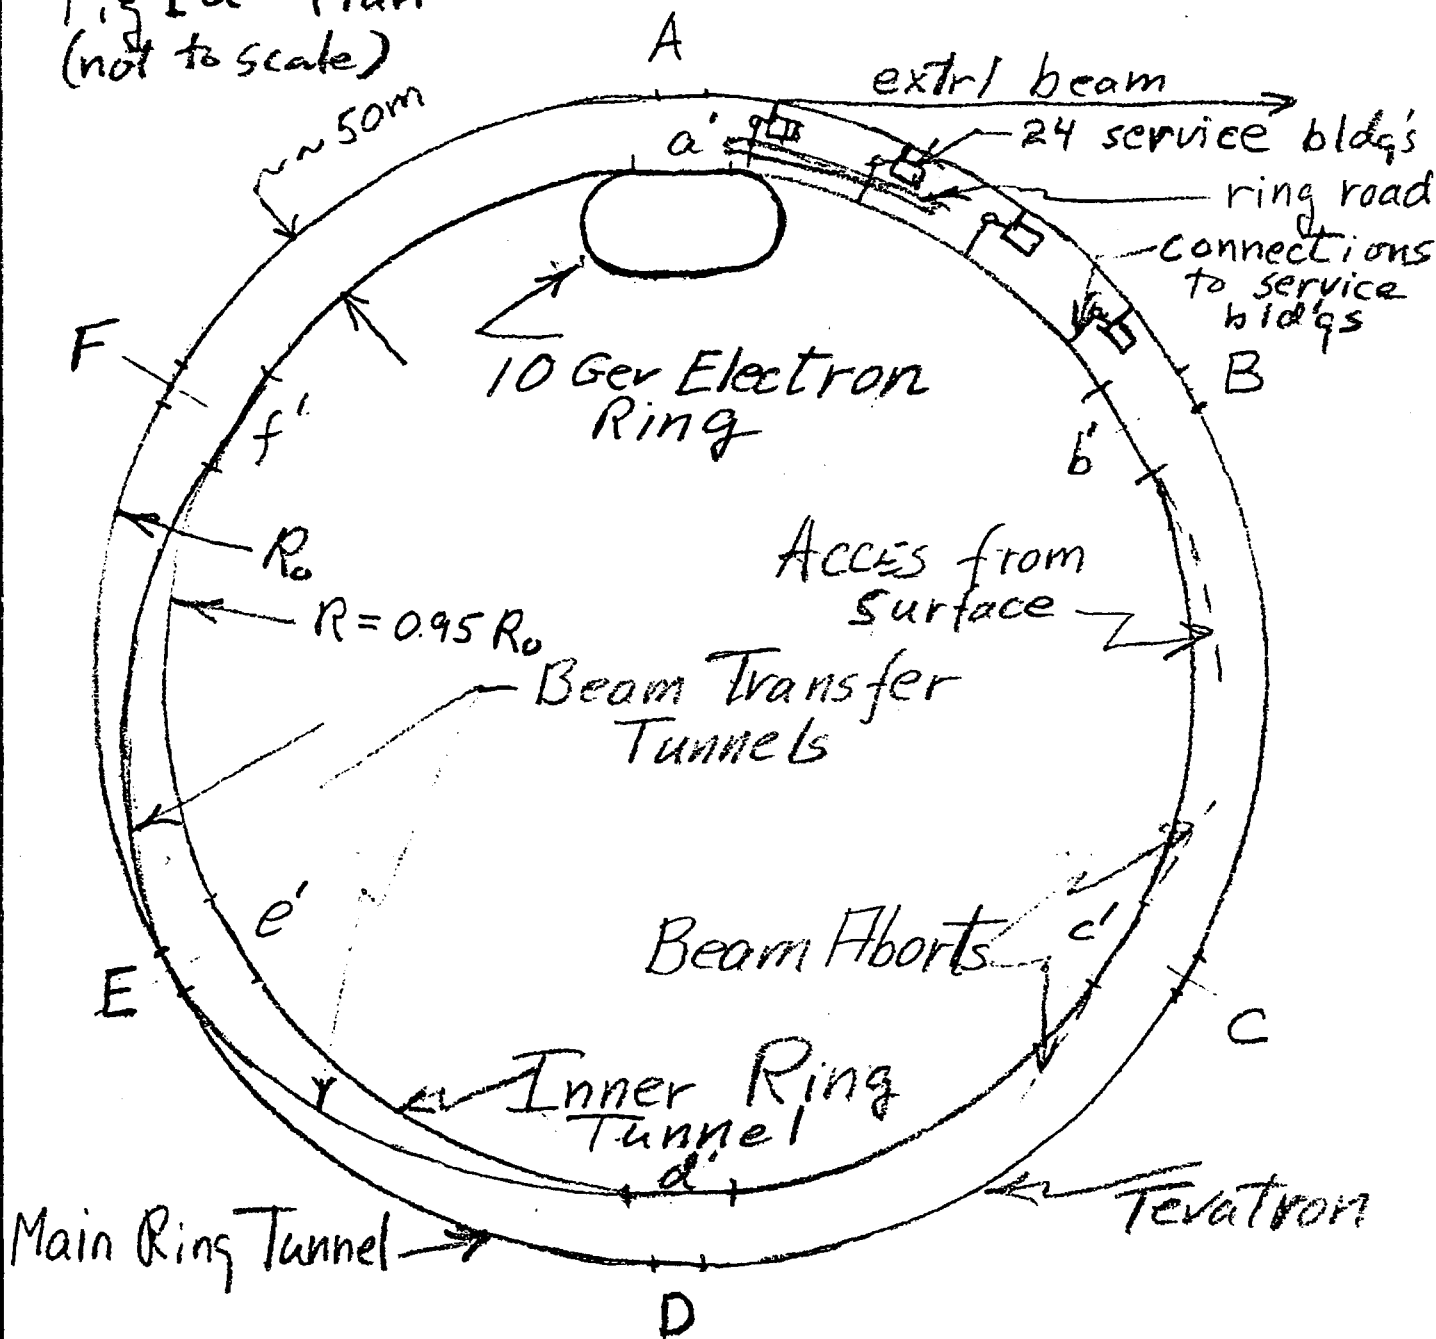 Fig 1a Plan
(not to scale)
A
~50m
extr'l beam
a'
24 service bldg's
ring road
connections
to service
bldgs
F
10 Gev Electron
Ring
B
f'
b'
R₀
R = 0.95 R₀
Acces from
surface
Beam Transfer
Tunnels
e'
Beam Aborts
c'
E
C
Inner Ring
Tunnel
d'
Tevatron
Main Ring Tunnel
D